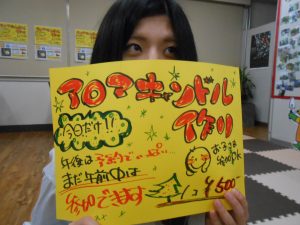 アロマキャンドル
作り
今日だけ!!
午後は予約でいっぱい…
まだ午前中は
参加できます
お子さま
参加OK
1コ ¥500-